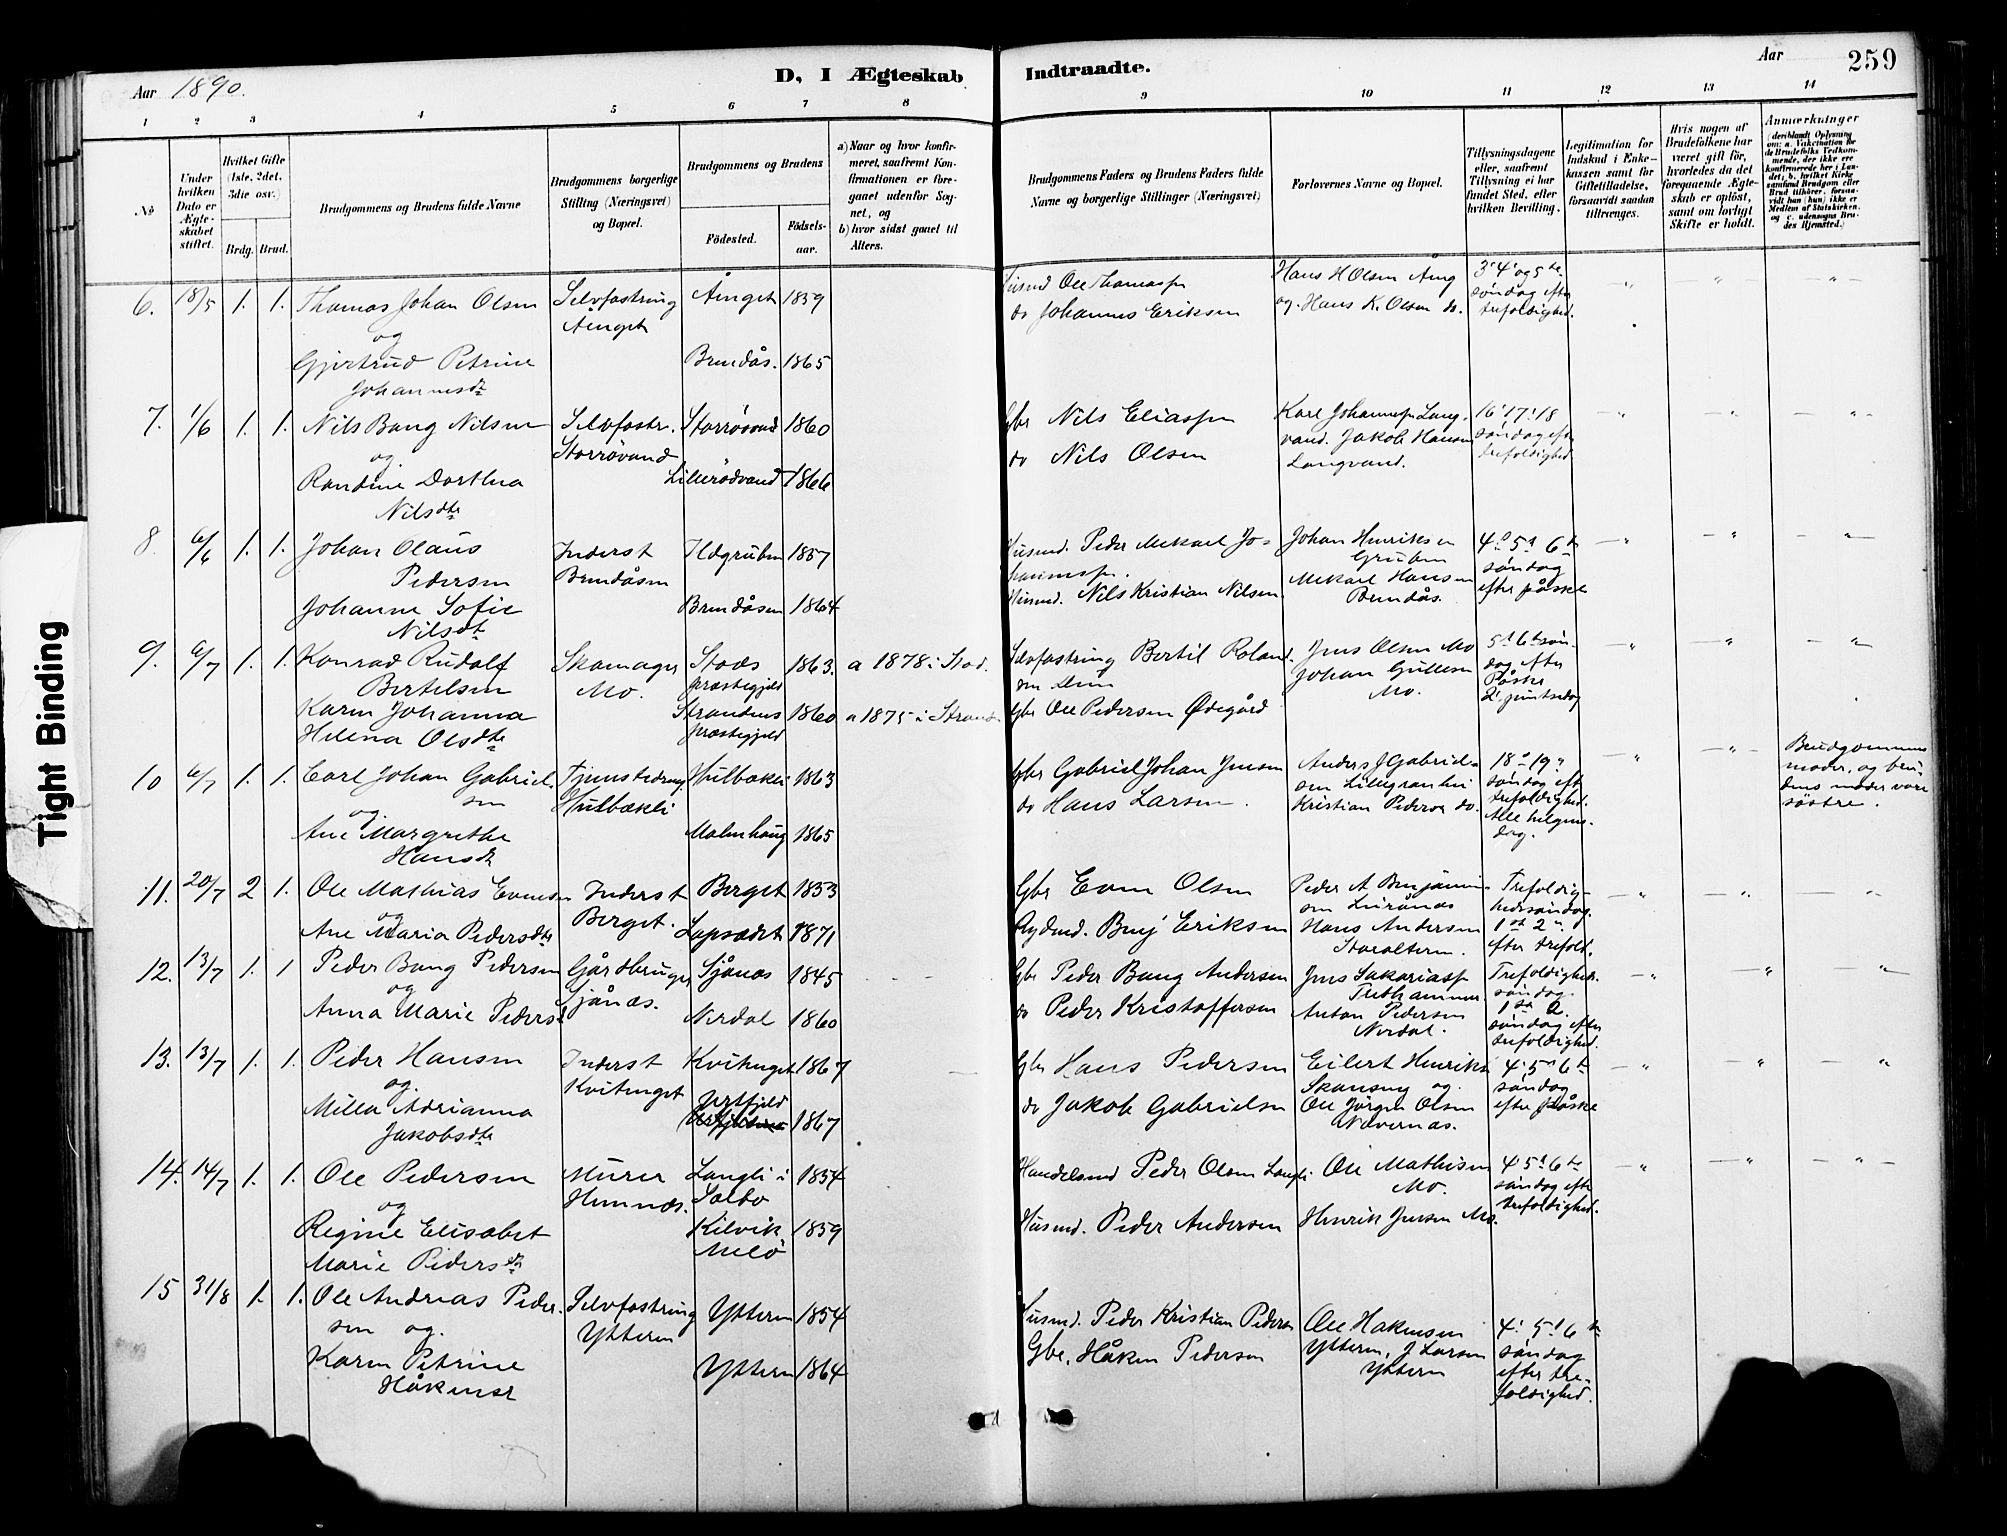 Aar 1890.
D, I Ægteskab
Indtraadte.
Aar
259
1 2 3 4 5 6 7 8
9 10 11 12 13 14
No
Under hvilken Dato er Ægteskabet stiftet.
Hvilket Gifte (1ste, 2det, 3die osv.)
Brdg. Brud.
Brudgommens og Brudens fulde Navne
Brudgommens borgerlige Stilling (Næringsvei) og Bopæl.
Brudgommens og Brudens
Fødested.
Fødselsaar.
a) Naar og hvor konfirmeret, saafremt Konfirmationen er foregaaet udenfor Sognet, og
b) hvor sidst gaaet til Alters.
Brudgommens Faders og Brudens Faders fulde Navne og borgerlige Stillinger (Næringsvei)
Forlovernes Navne og Bopæl.
Tillysningsdagene eller, saafremt Tillysning ei har fundet Sted, efter hvilken Bevilling.
Legitimation for Indskud i Enkekassen samt for Giftetilladelse, forsaavidt saadan tiltrænges.
Hvis nogen af Brudefolkene har været gift før, hvorledes da det foregaaende Ægteskab er opløst, samt om lovligt Skifte er holdt.
Anmærkninger
6. 18/5 1. 1. Thomas Johan Olsen
og
Gjertrud Petrine
Johannesdtr
Selvfostring
Ånget
Ånget 1859
Brendås. 1865
Husmd Ole Thomassen
do Johannes Eriksen
Hans H Olsen Äng
og Hans K. Olsen do.
3' 4' og 5te
søndag efter
trefoldighed.
7. 1/6 1. 1. Nils Bang Nilsen
og
Randine Dorthea
Nilsdtr
Selvfostr.
Storrøvand
Storrøvand 1860
Lillerødvand 1866
Gbr Nils Eliassen
do Nils Olsen
Karl Johannessen Langvand. Jakob Hansen
Langvand.
16' 17' 18
søndag efter
trefoldighed
8. 6/6 1. 1. Johan Olaus
Pedersen
Johanne Sofie
Nilsdt
Inderst
Brendåsen
Ildgruben 1857
Brendåsen 1864
Husmd. Peder Mekael Johannessen.
Husmd. Nils Kristian Nilsen
Johan Henriksen
Gruben
Mekael Hansen
Brendås.
4 5 6te
søndag
efter påske
9. 6/7 1. 1. Konrad Rudolf
Bertelsen
Karen Johanna
Helena Olsdtr
Skomager
Mo.
Stods 1863.
præstegjeld
Strandens 1860
præstegjeld
a 1878 i Stod.
a 1875 i Strand
Selvfostring Bertil Roland
Gbr Ole Pedersen Ødegård
Jens Olsen Mo
Johan Gullesen
Mo.
5 6te søndag efter
Påske
2' pintsedag
10 6/7 1. 1. Carl Johan Gabrielsen
og
Ane Margrethe
Hansdtr
Tjenstedreng
Hulbækli
Hulbækli 1863
Malmhaug 1865
Gbr Gabriel Johan Jensen
do Hans Larsen.
Anders J Gabrielsen Lillegranhei
Kristian Pederse do.
18 19
søndag eft
trefoldighed.
Alle helgensdag.
Brudgommens
moder, og brudens moder vare
søstre.
11. 20/7 2 1. Ole Mathias Evensen
og
Ane Maria Pedersdtr
Inderst
Berget.
Berget 1853
Lapsædet 1871
Gbr Even Olsen
Rydmd. Benj Eriksen
Peder A Benjaminsen Luranæs
Hans Andersen
Storalteren.
Trefoldighedssøndag.
1ste 2
efter trefold.
12. 13/7 1. 1 Peder Bang Pedersen
og
Anna Marie Pedersd
Gårdbruger
Sjånæs.
Sjånæs 1845
Nerdal 1860
Gbr Peder Bang Andersen
do Peder Kristoffersen
Jens Sakariassen
Trethammer.
Anton Pedersen
Nerdal.
Trefoldigheds
søndag.
1ste 2.
søndag efter
trefoldighed.
13. 13/7 1. 1. Peder Hansen
og.
Milla Adrianna
Jakobsdtr
Inderst
Kvitenget
Kvitenget 1867
Urtfjeld 1867
Gbr Hans Pedersen
do Jakob Gabrielsen
Eilert Henriks
Skanseng og.
Ole Jörgen Olsen
Nævernæs.
4' 5 6te
søndag
efter påske
14. 14/7 1. 1. Ole Pedersen
og
Regine Elisabet
Marie Pedersdtr
Murer
Hemnæs.
Langli i 1854
Sælbo
Kilvik 1859
Melø
Handelsmd Peder Olsen Langli
Husmd. Peder Andersen
Ole Mathisen
Mo.
Henrik Jensen Mo.
4 5 6te
søndag efter
trefoldighed.
15 31/8 1. 1. Ole Andreas Pedersen og.
Karen Petrine
Håkensdt
Selvfostring
Ytteren
Ytteren 1854
Ytteren 1864
Husmd. Peder Kristian Pedersen
Gbr. Håken Pedersen
Ole Hakensen
Ytteren, J Larsen
Ytteren
4' 5' 6te
søndag
efter trefoldighed.
Tight Binding